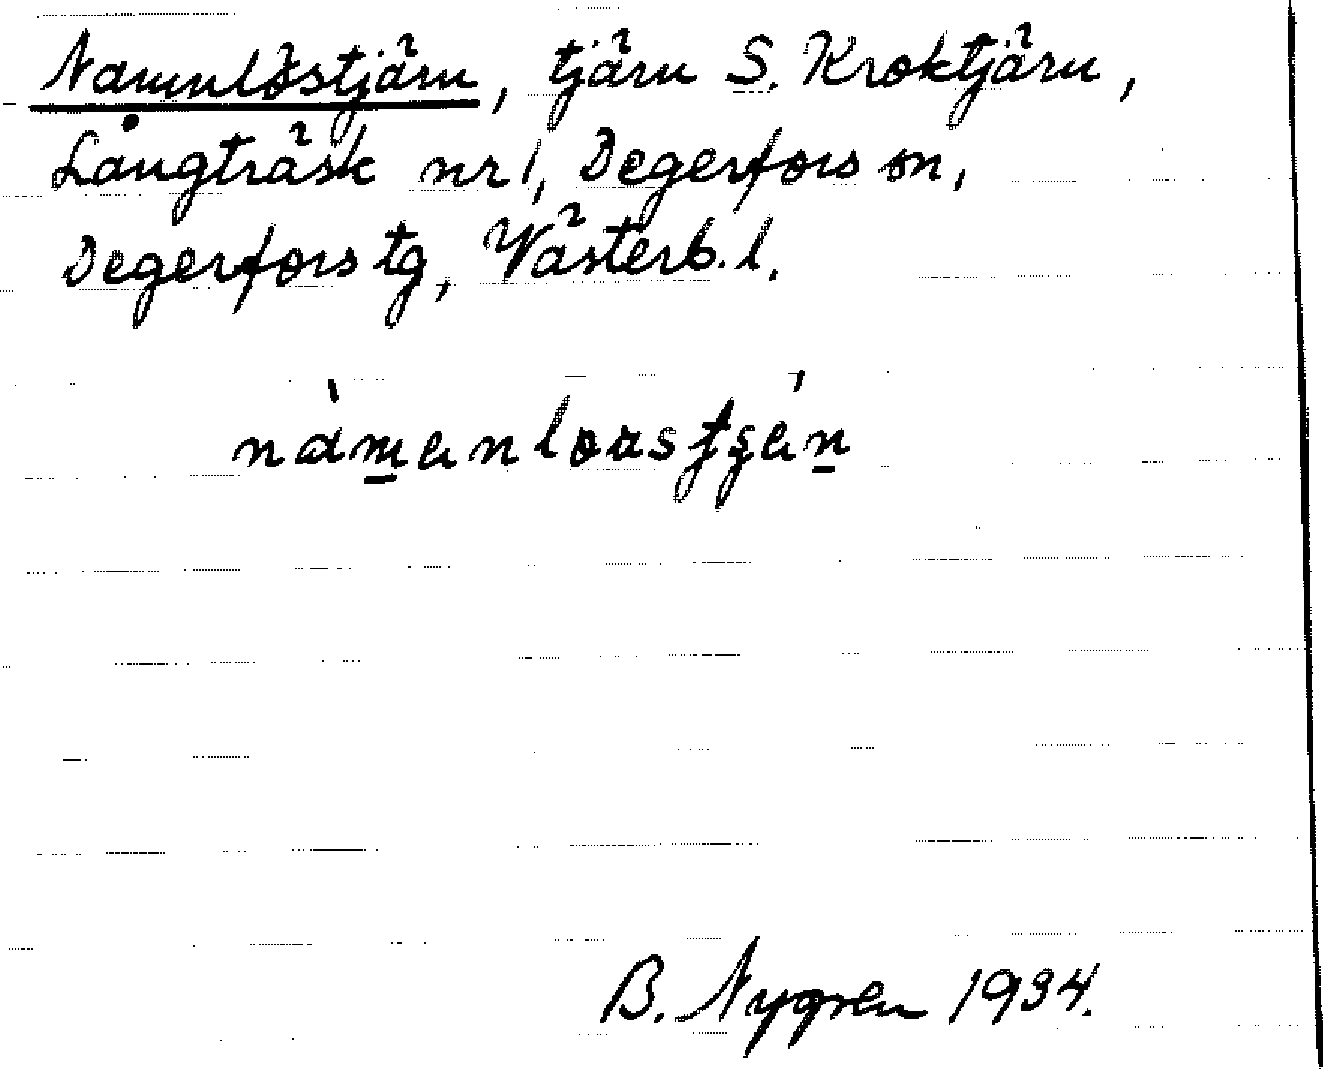 Namnlöstjärn, tjärn S. Kroktjärn,
Långträsk nr 1, Degerfors sn,
Degerfors tg, Västerb. l.
B. Nygren 1934.